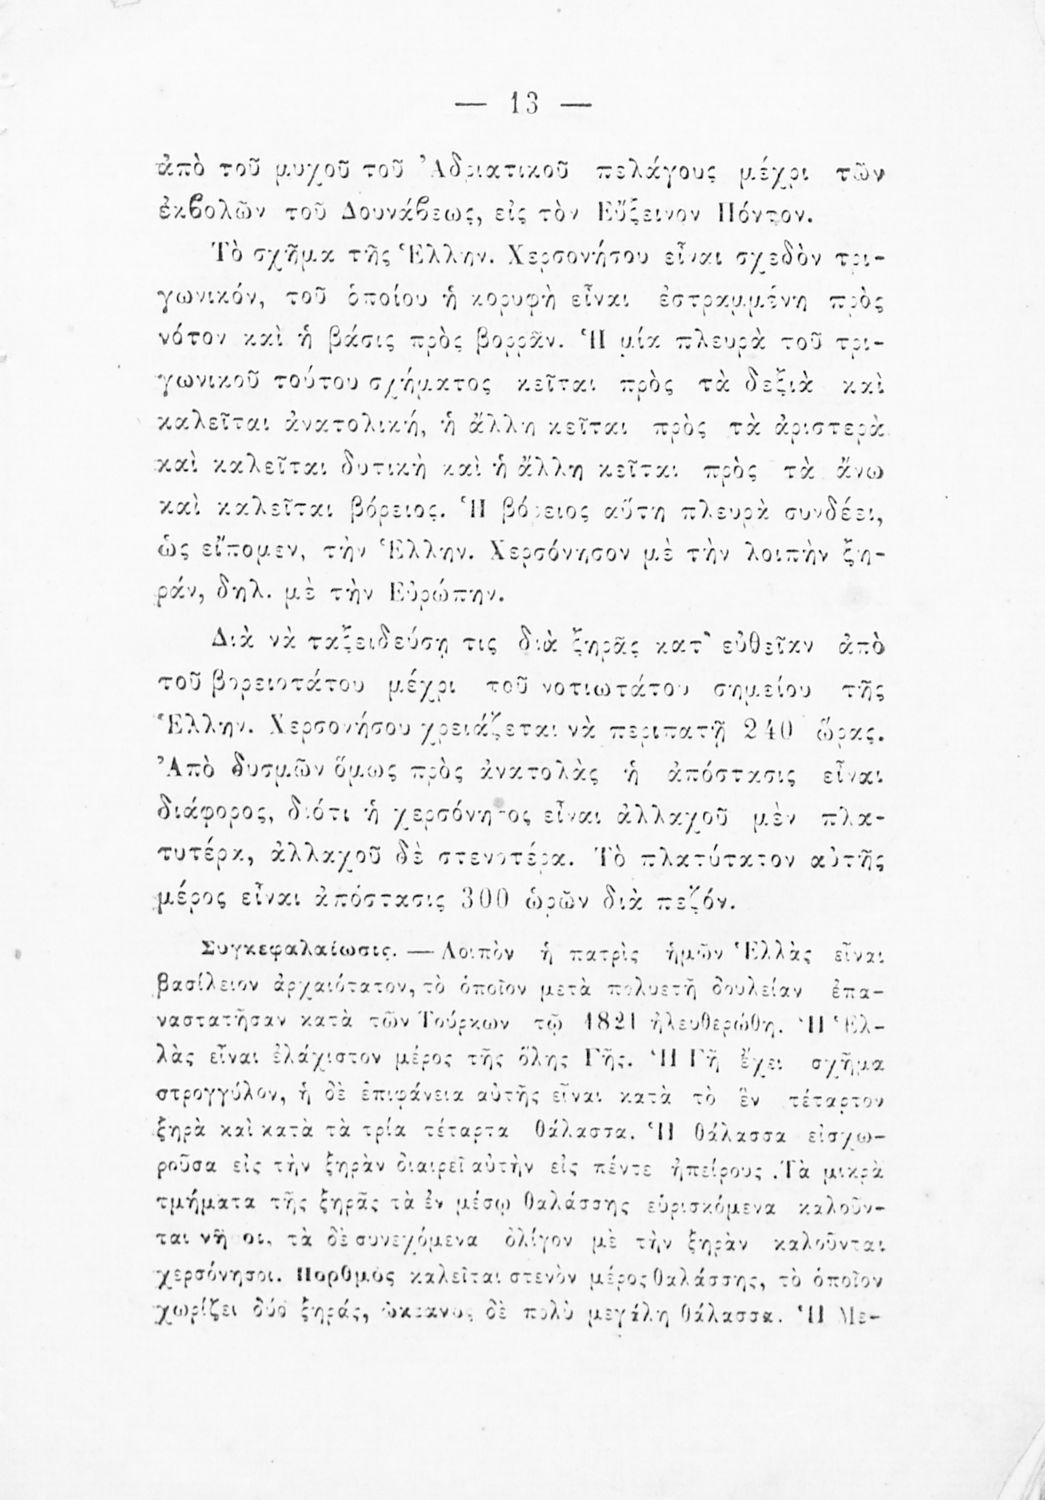 — 13 —
ἀπὸ τοῦ μυχοῦ τοῦ Ἀδριατικοῦ πελάγους μέχρι τῶν
ἐκβολῶν τοῦ Δουνάβεως, εἰς τὸν Εὔξεινον Πόντον.
Τὸ σχῆμα τῆς Ἑλλην. Χερσονήσου εἶναι σχεδὸν τρι-
γωνικόν, τοῦ ὁποίου ἡ κορυφὴ εἶναι ἐστραμμένη πρὸς
νότον καὶ ἡ βάσις πρὸς βορρᾶν. Ἡ μία πλευρὰ τοῦ τρι-
γωνικοῦ τούτου σχήματος κεῖται πρὸς τὰ δεξιὰ καὶ
καλεῖται ἀνατολική, ἡ ἄλλη κεῖται πρὸς τὰ ἀριστερὰ
καὶ καλεῖται δυτικὴ καὶ ἡ ἄλλη κεῖται πρὸς τὰ ἄνω
καὶ καλεῖται βόρειος. Ἡ βόρειος αὕτη πλευρὰ συνδέει,
ὡς εἴπομεν, τὴν Ἑλλην. Χερσόνησον μὲ τὴν λοιπὴν ξη-
ράν, δηλ. μὲ τὴν Εὐρώπην.
Διὰ νὰ ταξειδεύσῃ τις διὰ ξηρᾶς κατ' εὐθεῖαν ἀπὸ
τοῦ βορειοτάτου μέχρι τοῦ νοτιωτάτου σημείου τῆς
Ἑλλην. Χερσονήσου χρειάζεται νὰ περιπατῇ 240 ὥρας.
Ἀπὸ δυσμῶν ὅμως πρὸς ἀνατολὰς ἡ ἀπόστασις εἶναι
διάφορος, διότι ἡ χερσόνησος εἶναι ἀλλαχοῦ μὲν πλα-
τυτέρα, ἀλλαχοῦ δὲ στενοτέρα. Τὸ πλατύτατον αὐτῆς
μέρος εἶναι ἀπόστασις 300 ὡρῶν διὰ πεζόν.
Συγκεφαλαίωσις. — Λοιπὸν ἡ πατρὶς ἡμῶν Ἑλλὰς εἶναι
βασίλειον ἀρχαιότατον, τὸ ὁποῖον μετὰ πολυετῆ δουλείαν ἐπα-
ναστατῆσαν κατὰ τῶν Τούρκων τῷ 1821 ἠλευθερώθη. Ἡ Ἑλ-
λὰς εἶναι ἐλάχιστον μέρος τῆς ὅλης Γῆς. Ἡ Γῆ ἔχει σχῆμα
στρογγύλον, ἡ δὲ ἐπιφάνεια αὐτῆς εἶναι κατὰ τὸ ἓν τέταρτον
ξηρὰ καὶ κατὰ τὰ τρία τέταρτα θάλασσα. Ἡ θάλασσα εἰσχω-
ροῦσα εἰς τὴν ξηρὰν διαιρεῖ αὐτὴν εἰς πέντε ἠπείρους .Τὰ μικρὰ
τμήματα τῆς ξηρᾶς τὰ ἐν μέσῳ θαλάσσης εὑρισκόμενα καλοῦν-
ται νῆσοι, τὰ δὲ συνεχόμενα ὀλίγον μὲ τὴν ξηρὰν καλοῦνται
χερσόνησοι. Πορθμὸς καλεῖται στενὸν μέρος θαλάσσης, τὸ ὁποῖον
χωρίζει δύο ξηράς, ὠκεανὸς δὲ πολὺ μεγάλη θάλασσα. Ἡ Με-